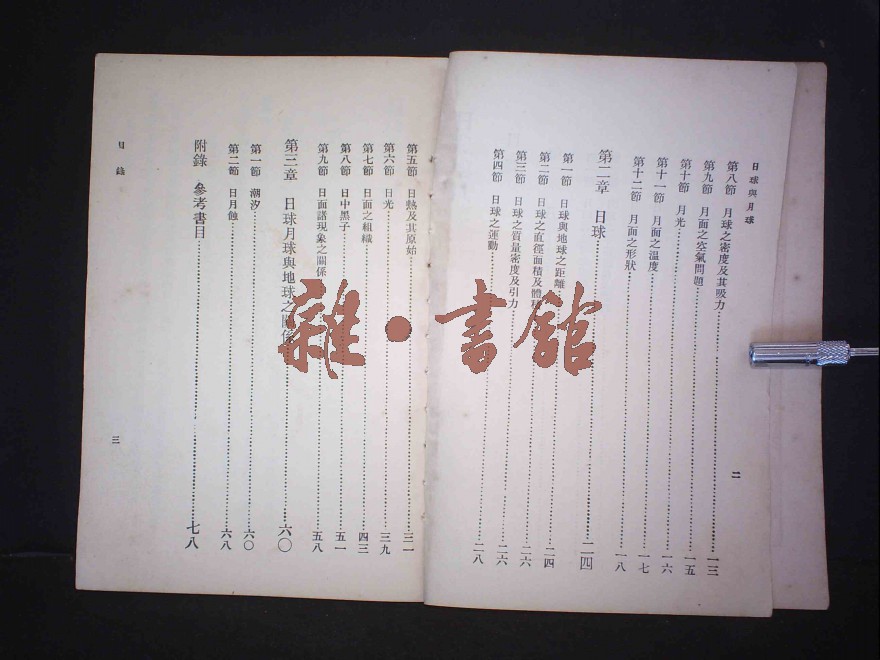 日球與月球
第八節 月球之密度及其吸力 一三
第九節 月面之空氣問題 一五
第十節 月光 一六
第十一節 月面之溫度 一七
第十二節 月面之形狀 一八
第二章 日球 二四
第一節 日球與地球之距離 二四
第二節 日球之直徑面積及體積 二六
第三節 日球之質量密度及引力 二六
第四節 日球之運動 二八
二
第五節 日熱及其原始 三一
第六節 日光 三九
第七節 日面之組織 四三
第八節 日中黑子 五一
第九節 日面諸現象之關係 五八
第三章 日球月球與地球之關係 六〇
第一節 潮汐 六〇
第二節 日月蝕 六八
附錄 參考書目 七八
目錄
三
雜·書館